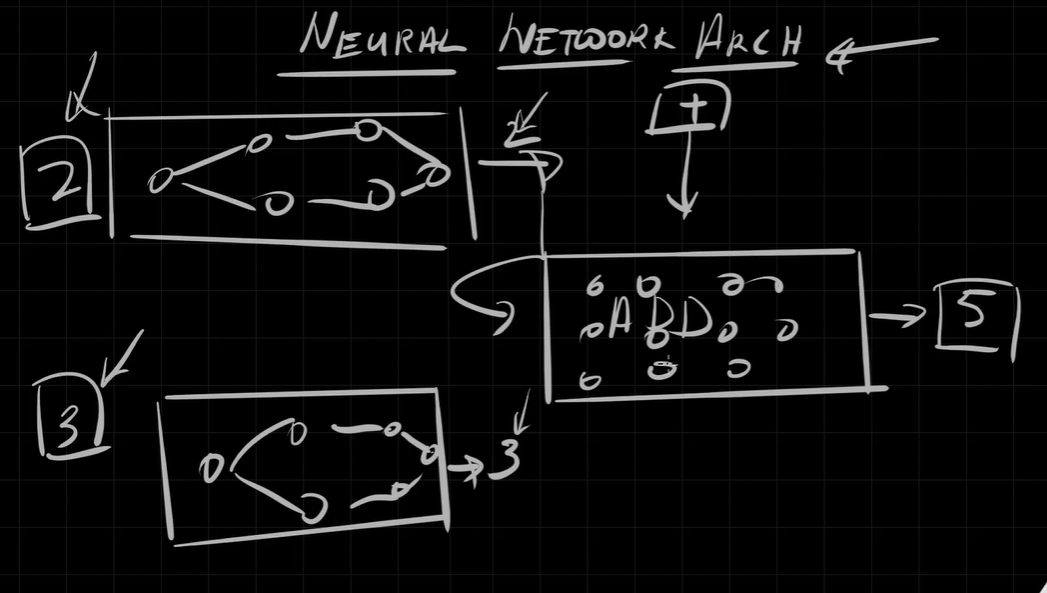 NEURAL NETWORK ARCH
+
2
2
ABD
5
3
3